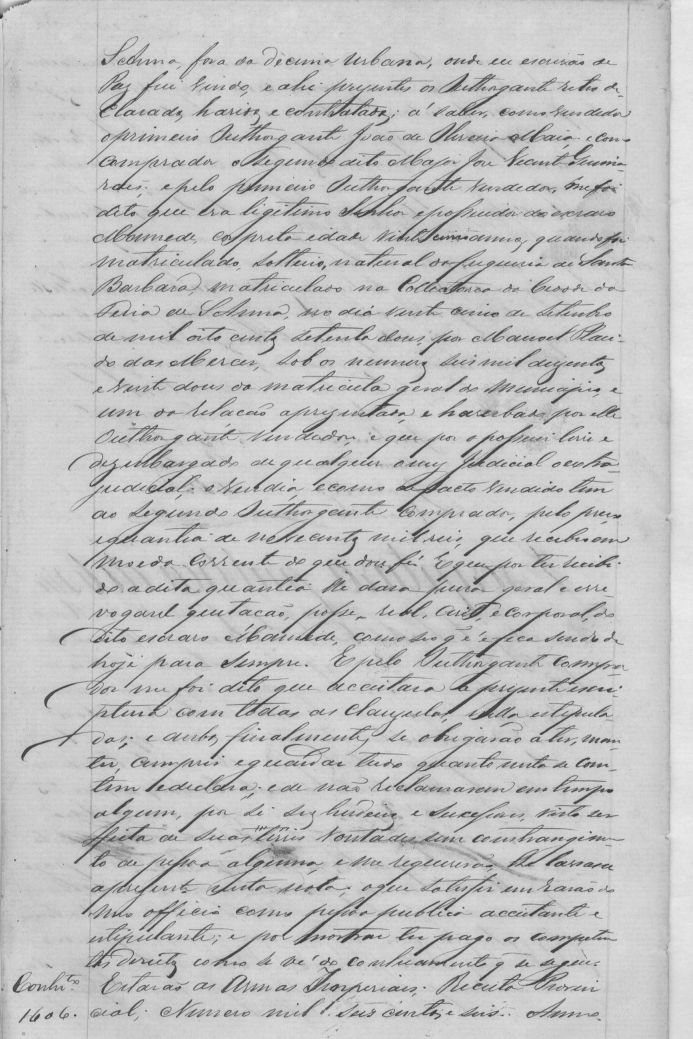 S. Anna, fora da decima urbana, onde eu escrivão de
Paz fui vindo, e ahi presentes os Outhorgante retro de-
clarados, havidos e contratados; a saber, como vendedor
o primeiro Outhorgante João de Oliveira Maia e como
comprador o segundo dito Major José Vicente Guima-
rães; e pelo primeiro Outhorgante vendedor, me foi
dito que era legitimo senhor e possuidor do escravo
Mamede, cor preta idade vinte cinco annos, quando foi
matriculado, solteiro, natural da freguezia de Santa
Barbara, matriculado na Collectoria da Cidade da
Feira de S. Anna, no dia vinte cinco de Setembro
de mil oito centos setenta dous, por Manoel Placi-
do das Merces, sob os numeros seis mil duzentos
e vinte dous da matricula geral do Municipio, e
um da relação apresentada, e haverbado por elle
Outhorgante vendedor, e que por o possuir livre e
dezembargado de qualquer onus Judicial o extra
judicial, o vendia, e como de facto vendido tem
ao segundo Outhorgante comprador, pelo preço
e quantia de novecentos mil reis, que recebeo em
moeda corrente do que dou fé. E que por ter recebi-
do a dita quantia lhe dava pura geral e irre-
vogavel quitação, posse, real, civil, e corporal, do
dito escravo Mamede, como seo q' é e fica sendo de
hoje para sempre. E pelo Outhorgante compra-
dor me foi dito que acceitava a prezente escri-
ptura com todas as clausulas, nella estipula-
das; e ambos, finalmente, se obrigarão a ter, man-
ter, cumprir e guardar tudo quanto nesta se con-
tem e declara; e de não reclamarem em tempo
algum, por si seus herdeiros e sucessores, visto ser
feita de suas livres vontades sem constrangimen-
to de pessoa alguma, e me requererão lhe lavrasse
a prezente nesta nota; o que satisfiz em razão do
meu officio como pessoa publica acceitante e
estipulante; e por mostrar ter pago os competen-
tes direitos como se vê do conhecimento q' se segue.
Conhto. Estavão as Armas Imperiaes. Receita Provin
1606. cial; Numero mil seis centos, e seis. Anno.